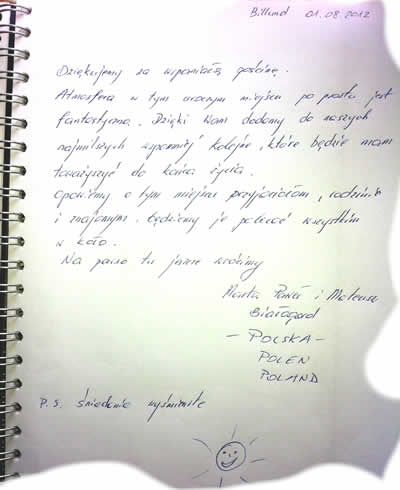 Billund 01.08.2012
Dziękujemy za wspaniałą gościnę.
Atmosfera w tym uroczym miejscu po prostu jest
fantastyczna. Dzięki Wam dodamy do naszych
najmilszych wspomnień kolejne, które będzie nam
towarzyszyć do końca życia.
Opowiemy o tym miejscu przyjaciołom, rodzinie
i znajomym. Będziemy je polecać wszystkim
w koło.
Na pewno tu jeszcze wrócimy
Marta Paweł i Mateusz
Białogard
- POLSKA -
POLEN
POLAND
P.S. Śniadanie wyśmienite